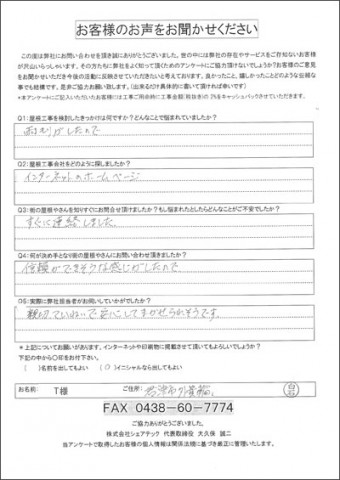 お客様のお声をお聞かせください
この度は弊社にお問い合わせを頂き誠にありがとうございます。世の中には弊社の存在やサービスをご存知ないお客様
が沢山いらっしゃいます。その方たちに弊社をよく知って頂くためのアンケートにご協力頂けないでしょうか?お客様のご意見
をお聞かせいただき今後の活動に反映させていただきたいと考えております。良かったこと、嬉しかったことどのような些細な
事でも結構です。是非ご協力お願い致します。(出来るだけ具体的に書いて頂ければ幸いです)
*本アンケートにご記入いただいたお客様には工事ご用命時に工事金額(税抜き)の 2%をキャッシュバックさせていただきます。
Q1:屋根工事を検討したきっかけは何ですか?どんなことで悩まれていましたか?
雨もりがしたので
Q2:屋根工事会社をどのように探しましたか?
インターネットのホームページ
Q3:街の屋根やさんを知りすぐにお問合せ頂けましたか?もし悩まれたとしたらどんなことがご不安でしたか?
すぐに連絡しました
Q4:何が決め手となり街の屋根やさんにお問い合わせ頂きましたか?
信頼ができそうな感じがしたので
Q5:実際に弊社担当者がお伺いしていかがでしたか?
親切ていねいで安心してまかせられそうです
*上記についてお願いがあります。インターネットや印刷物に掲載させて頂いてもよろしいでしょうか?
下記の中から〇印をお付下さい。
( )名前を出してもよい (〇)イニシャルなら出してもよい
お名前: T様 ご住所: 君津市外箕輪
FAX 0438-60-7774
ご協力ありがとうございました。
株式会社シェアテック 代表取締役 大久保 誠二
当アンケートで取得したお客様の個人情報は関係法規に基づき厳正に管理いたします。